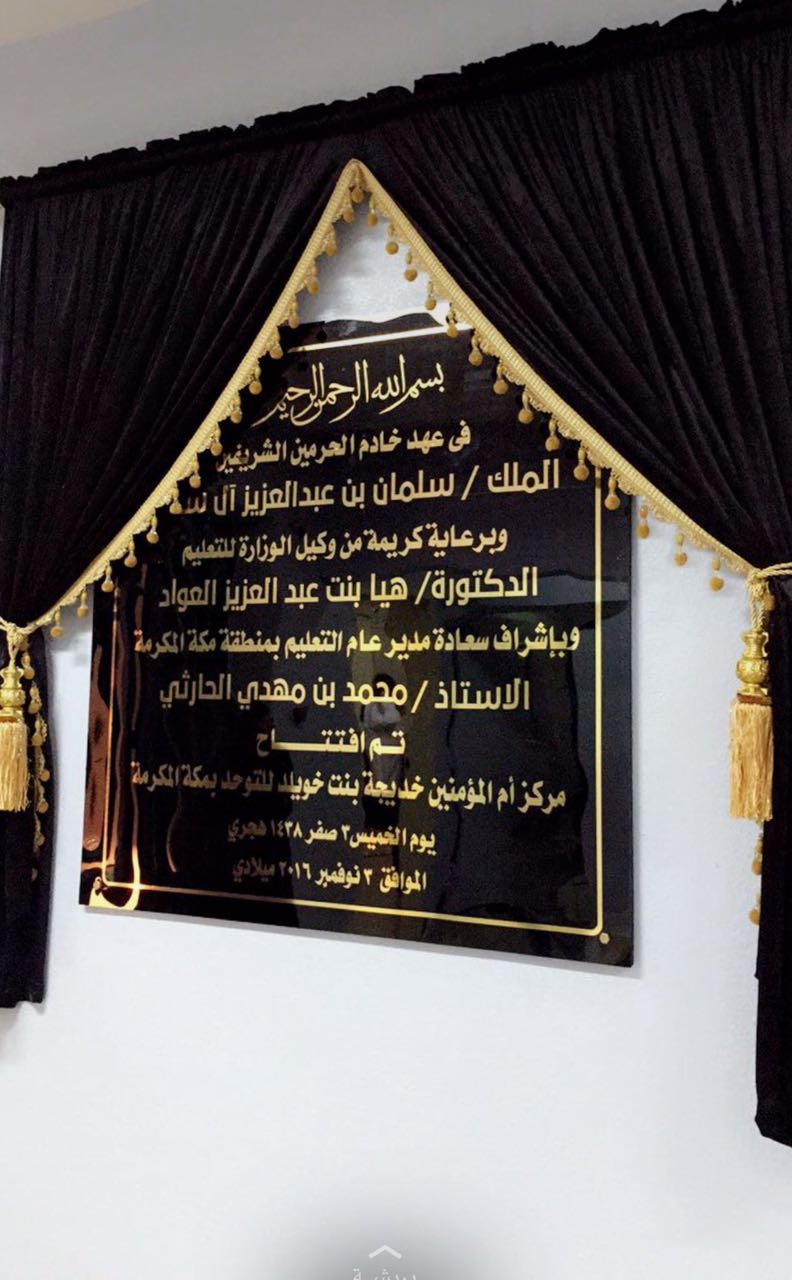 بسم الله الرحمن الرحيم
في عهد خادم الحرمين الشريفين
الملك / سلمان بن عبدالعزيز آل
وبرعاية كريمة من وكيل الوزارة للتعليم
الدكتورة/ هيا بنت عبد العزيز العواد
وبإشراف سعادة مدير عام التعليم بمنطقة مكة المكرمة
الاستاذ / محمد بن مهدي الحارثي
تم افتتــــاح
مركز أم المؤمنين خديجة بنت خويلد للتوحد بمكة المكرمة
يوم الخميس ٣ صفر ١٤٣٨ هجري
الموافق ٣ نوفمبر ٢٠١٦ ميلادي